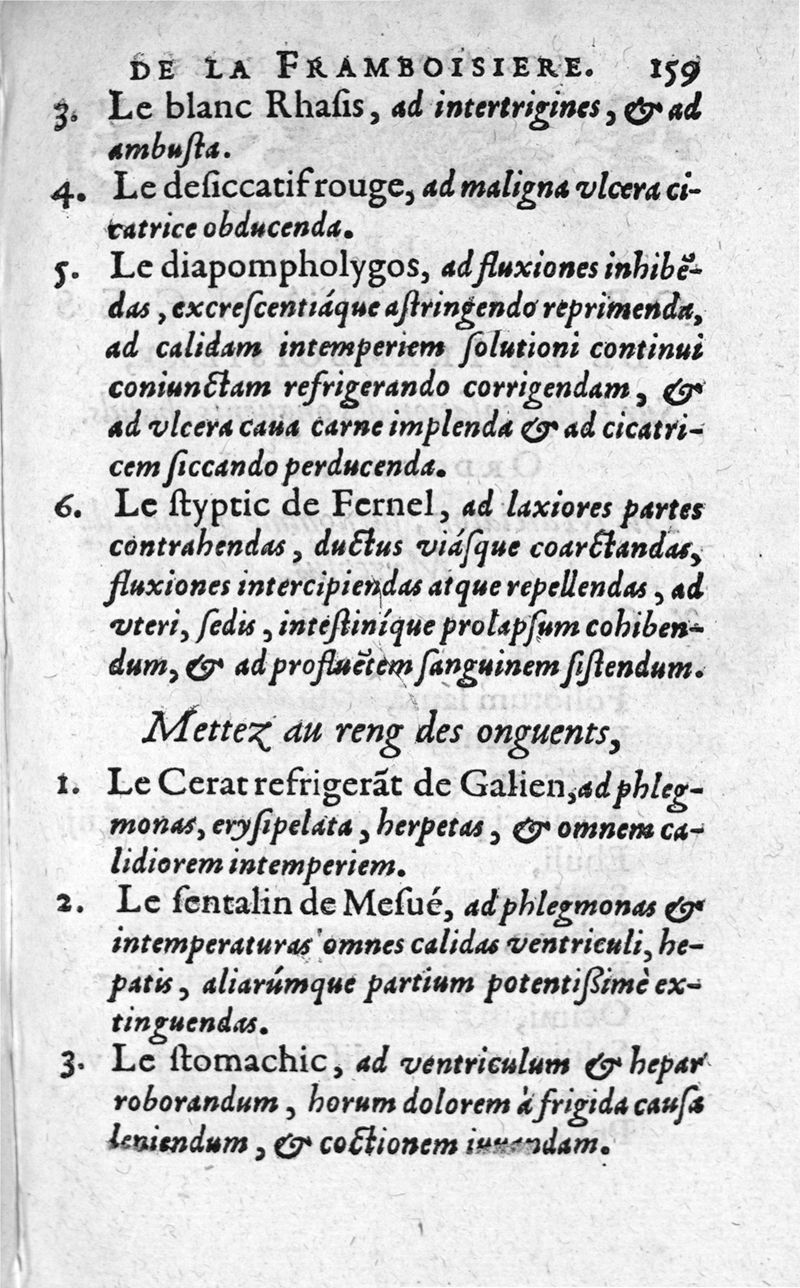 DE LA FRAMBOISIERE. 159
3. Le blanc Rhaſis, ad intertrigines, & ad
ambuſta.
4. Le deſiccatif rouge, ad maligna vlcera ci-
catrice obducenda.
5. Le diapompholygos, ad fluxiones inhibē-
das, excreſcentiáque aſtringendo reprimenda,
ad calidam intemperiem ſolutioni continui
coniunctam refrigerando corrigendam, &
ad vlcera caua carne implenda & ad cicatri-
cem ſiccando perducenda.
6. Le ſtyptic de Fernel, ad laxiores partes
contrahendas, ductus viáſque coarctandas,
fluxiones intercipiendas atque repellendas, ad
vteri, ſedis, inteſtiníque prolapſum cohiben-
dum, & ad profluētem ſanguinem ſiſtendum.
Mettez au reng des onguents,
1. Le Cerat refrigerāt de Galien, ad phleg-
monas, eryſipelata, herpetas, & omnem ca-
lidiorem intemperiem.
2. Le ſentalin de Meſué, ad phlegmonas &
intemperaturas omnes calidas ventriculi, he-
patis, aliarúmque partium potentißimè ex-
tinguendas.
3. Le ſtomachic, ad ventriculum & hepar
roborandum, horum dolorem à frigida cauſa
leniendum, & coctionem iuuandam.